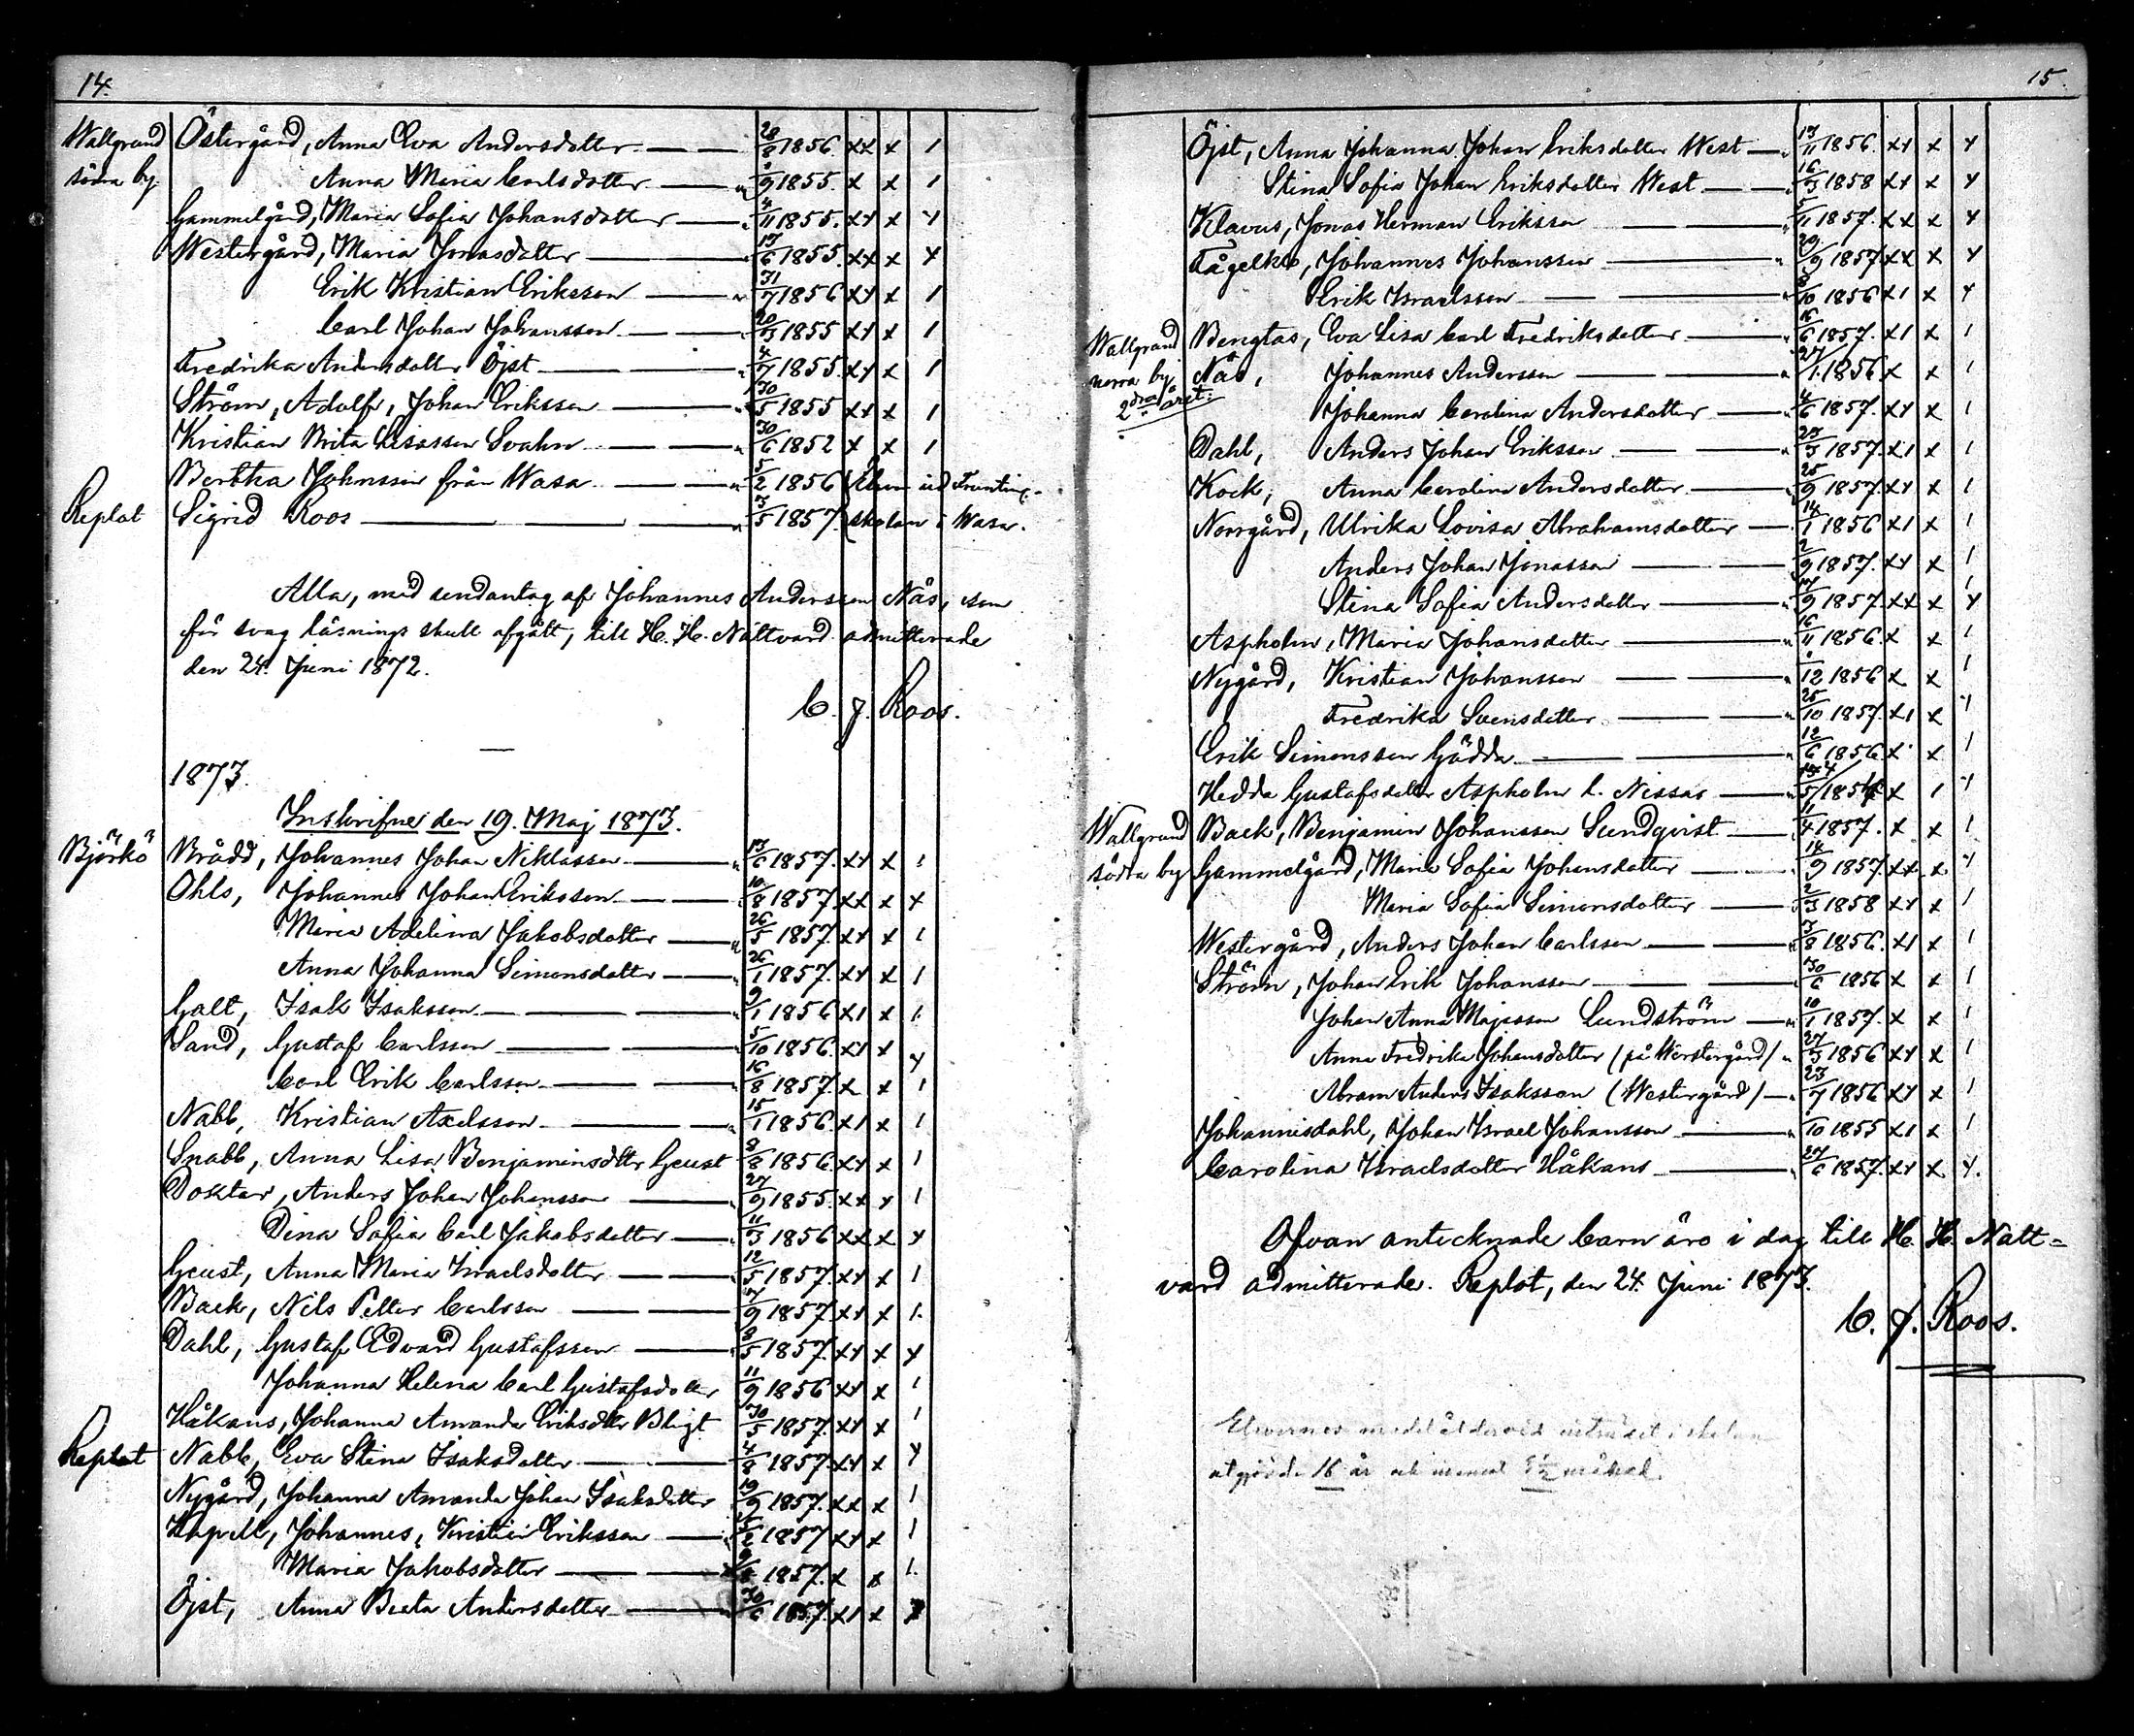 14.
Wallgrund Östergård, Anna Eva Andersdotter 28/8 1856. xx x 1
södra by Anna Maria Carlsdotter 9 1855. x x 1
Gammelgård, Maria Sofia Johansdotter 4/11 1855. xx x x
Westergård, Maria Jonasdotter 13/6 1855. xx x x
Erik Kristian Eriksson 31/7 1856 xx x 1
Carl Johan Johansson 20/3 1855 xx x 1
Fredrika Andersdotter Öjst 4/7 1855. xx x 1
Ström, Adolf, Johan Eriksson 30/5 1855 xx x 1
Kristian Brita Lisasson Svahn 30/6 1852 x x 1
Bertha Johnsson från Wasa 5/2 1856 (Elever vid Fruntim-
Replot Sigrid Roos 3/5 1857. (skolan i Wasa.
Alla, med undantag af Johannes Andersson Nås, som
för svag läsnings skull afgått, till H. H. Nattvard admitterade
den 24. Juni 1872.
C. J. Roos.
1873.
Inskrifne den 19. Maj 1873.
Björkö Brådd, Johannes Johan Niklasson 13/6 1857. xx x 1
Ohls, Johannes Johan Eriksson 10/8 1857 xx x x
Maria Adelina Jakobsdotter 26/5 1857. xx x 1
Anna Johanna Simonsdotter 26/1 1857. xx x 1
Galt, Isak Isaksson 9/1 1856 x1 x 1
Sand, Gustaf Carlsson 5/10 1856. x1 x x
Carl Erik Carlsson 16/8 1857. x x 1
Nabb, Kristian Axelsson 15/1 1856. x1 x 1
Snabb, Anna Lisa Benjaminsdtter Geust 8/8 1856. xx x 1
Doktar, Anders Johan Johansson 27/9 1855. xx x 1
Dina Sofia Carl Jakobsdotter 11/3 1856 xx x x
Geust, Anna Maria Israelsdotter 12/5 1857. xx x 1
Back, Nils Petter Carlsson 7/9 1857. xx x 1.
Dahl, Gustaf Edvard Gustafsson 8/5 1857. xx x x
Johanna Helena Carl Gustafsdotter 11/9 1856 xx x 1
Håkans, Johanna Amanda Eriksdtter Bligt 30/5 1857. xx x 1
Replot Nabb, Eva Stina Isaksdotter 4/8 1857. xx x x
Nygård, Johanna Amanda Johan Isaksdotter 19/9 1857. xx x 1
Kapell, Johannes, Kristian Eriksson 5/2 1857 xx x 1
Maria Jakobsdotter 9/8 1857. x x 1.
Öjst, Anna Beata Andersdotter 30/6 1857. x1 x x
15.
Öjst, Anna Johanna Johan Eriksdotter West 13/11 1856. xx x x
Stina Sofia Johan Eriksdotter West 16/3 1858 xx x x
Klavus, Jonas Herman Eriksson 5/11 1857. xx x x
Fågelklo, Johannes Johansson 29/9 1857 xx x x
Erik Israelsson 8/10 1856 x1 x x
Wallgrund Bengtas, Eva Lisa Carl Fredriksdotter 16/6 1857. x1 x 1
norra by. Nås, Johannes Andersson 27/1. 1856 x x 1
2dra året. Johanna Carolina Andersdotter 4/6 1857. xx x 1
Dahl, Anders Johan Eriksson 23/3 1857. x1 x 1
Kock, Anna Carolina Andersdotter 25/9 1857 xx x 1
Norrgård, Ulrika Lovisa Abrahamsdotter 14/1 1856 x1 x 1
Anders Johan Jonasson 2/9 1857. xx x 1
Stina Sofia Andersdotter 17/9 1857 xx x x
Aspholm, Maria Johansdotter 16/11 1856. x x 1
Nygård, Kristian Johansson 12 1856 x x 1
Fredrika Svensdotter 25/10 1857. x1 x x
Erik Simonsson Gädda 12/6 1856. x x 1
Hedda Gustafsdotter Aspholm l. Nissas x 1 x
Wallgrund Back, Benjamin Johansson Sundqvist 1/4 1857. x x 1
södra by Gammelgård, Maria Sofia Johansdotter 14/9 1857 xx x x
Maria Sofia Simonsdotter 2/3 1858 xx x 1
Westergård, Anders Johan Carlsson 3/8 1856. x1 x 1
Ström, Johan Erik Johansson 30/6 1856 x x 1
Johan Anna Majasson Lundström 10/1 1857. x x 1
Anna Fredrika Johansdotter (på Westergård) 27/3 1856 xx x 1
Abram Anders Isaksson (Westergård) 23/7 1856 xx x 1
Johannisdahl, Johan Israel Johansson 10 1855 x1 x 1
Carolina Israelsdotter Håkans 27/6 1857. xx x x.
Ofvan antecknade barn äro i dag till H. H. Natt-
vard admitterade. Replot, den 24. Juni 1873.
C. J. Roos.
Elevernes medelålder vid inträdet i skolan
utgjorde 16 år och minst 5½ månad.